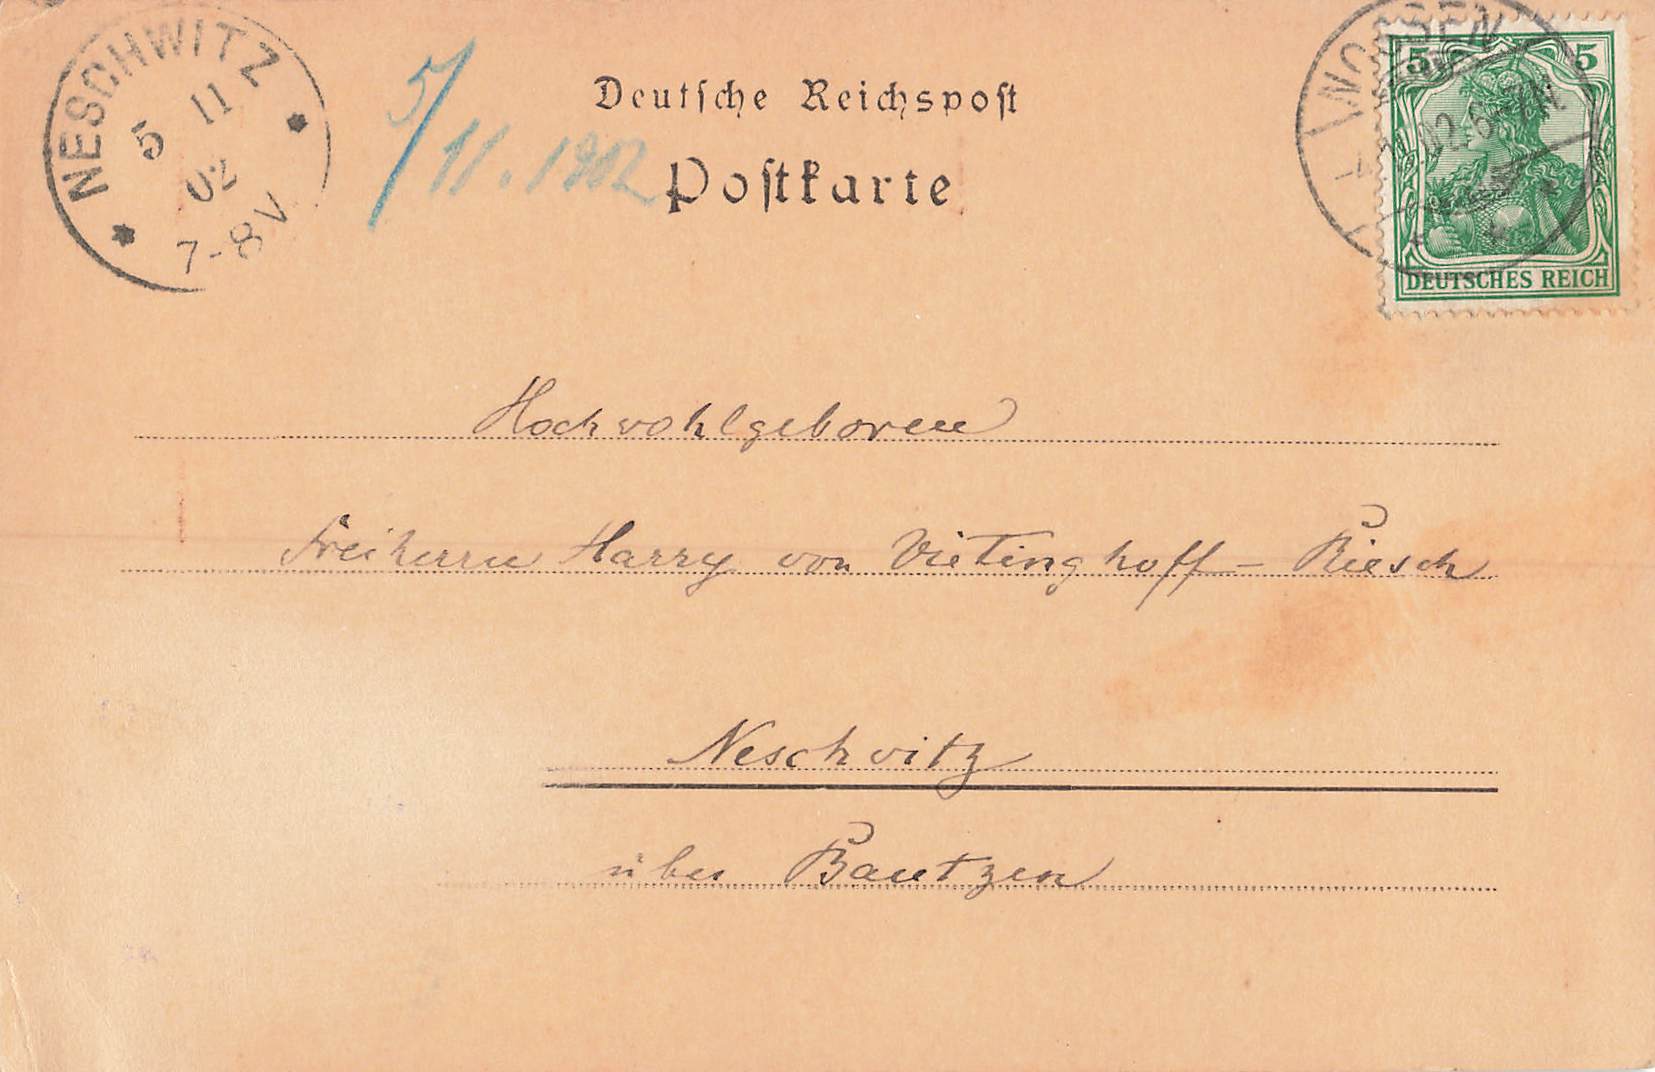 NESCHWITZ
5 11
02
7-8V
5/11.1902
Deutsche Reichspost
Postkarte
NOSSEN
02. 6-7N.
5 5
DEUTSCHES REICH
Hochwohlgeboren
Freiherrn Harry von Vietinghoff-Riesch
Neschwitz
über Bautzen